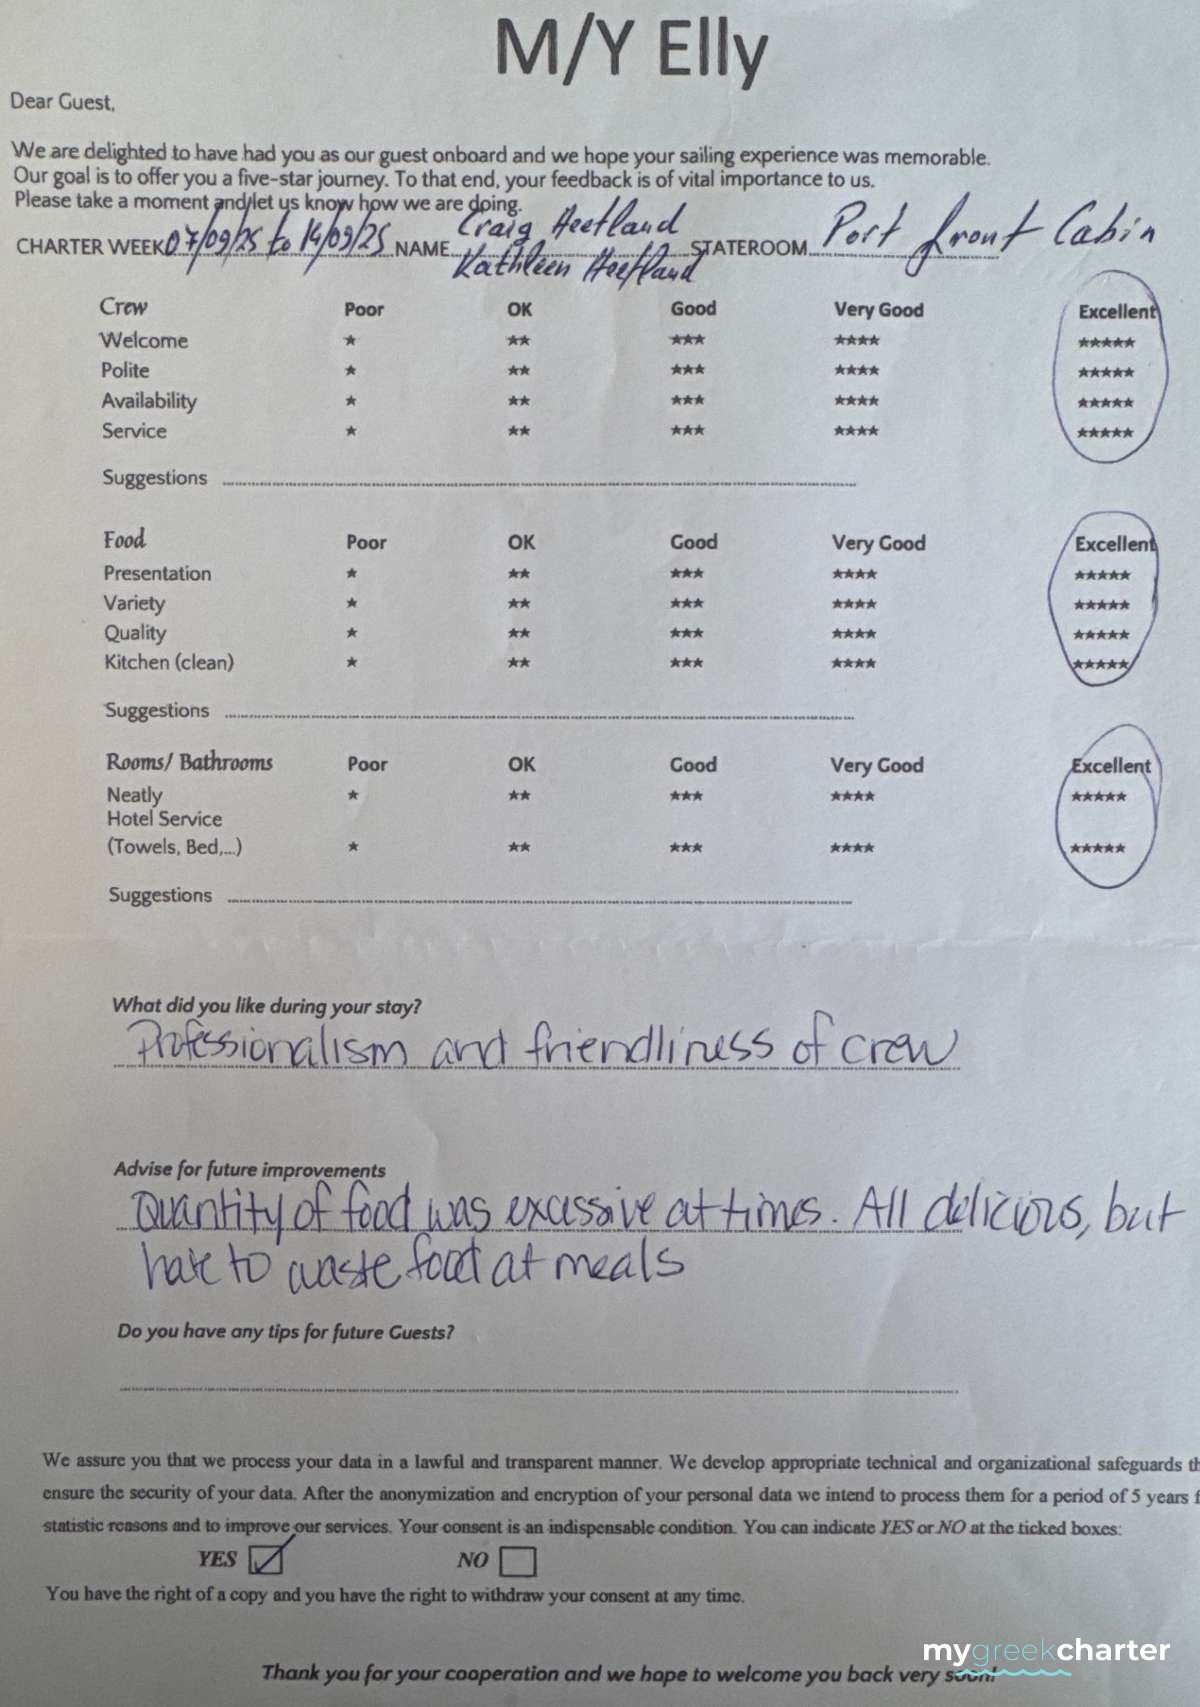 M/Y Elly
Dear Guest,
We are delighted to have had you as our guest onboard and we hope your sailing experience was memorable.
Our goal is to offer you a five-star journey. To that end, your feedback is of vital importance to us.
Please take a moment and let us know how we are doing.
Craig Heetland
CHARTER WEEK 07/09/25 to 14/09/25 NAME Kathleen Heetland STATEROOM Port front Cabin
Crew Poor OK Good Very Good Excellent
Welcome ★ ★★ ★★★ ★★★★ ★★★★★
Polite ★ ★★ ★★★ ★★★★ ★★★★★
Availability ★ ★★ ★★★ ★★★★ ★★★★★
Service ★ ★★ ★★★ ★★★★ ★★★★★
Suggestions
Food Poor OK Good Very Good Excellent
Presentation ★ ★★ ★★★ ★★★★ ★★★★★
Variety ★ ★★ ★★★ ★★★★ ★★★★★
Quality ★ ★★ ★★★ ★★★★ ★★★★★
Kitchen (clean) ★ ★★ ★★★ ★★★★ ★★★★★
Suggestions
Rooms/ Bathrooms Poor OK Good Very Good Excellent
Neatly ★ ★★ ★★★ ★★★★ ★★★★★
Hotel Service
(Towels, Bed,...) ★ ★★ ★★★ ★★★★ ★★★★★
Suggestions
What did you like during your stay?
Professionalism and friendliness of crew
Advise for future improvements
Quantity of food was excessive at times. All delicious, but
hate to waste food at meals
Do you have any tips for future Guests?
We assure you that we process your data in a lawful and transparent manner. We develop appropriate technical and organizational safeguards th
ensure the security of your data. After the anonymization and encryption of your personal data we intend to process them for a period of 5 years f
statistic reasons and to improve our services. Your consent is an indispensable condition. You can indicate YES or NO at the ticked boxes:
YES NO
You have the right of a copy and you have the right to withdraw your consent at any time.
mygreekcharter
Thank you for your cooperation and we hope to welcome you back very soon!